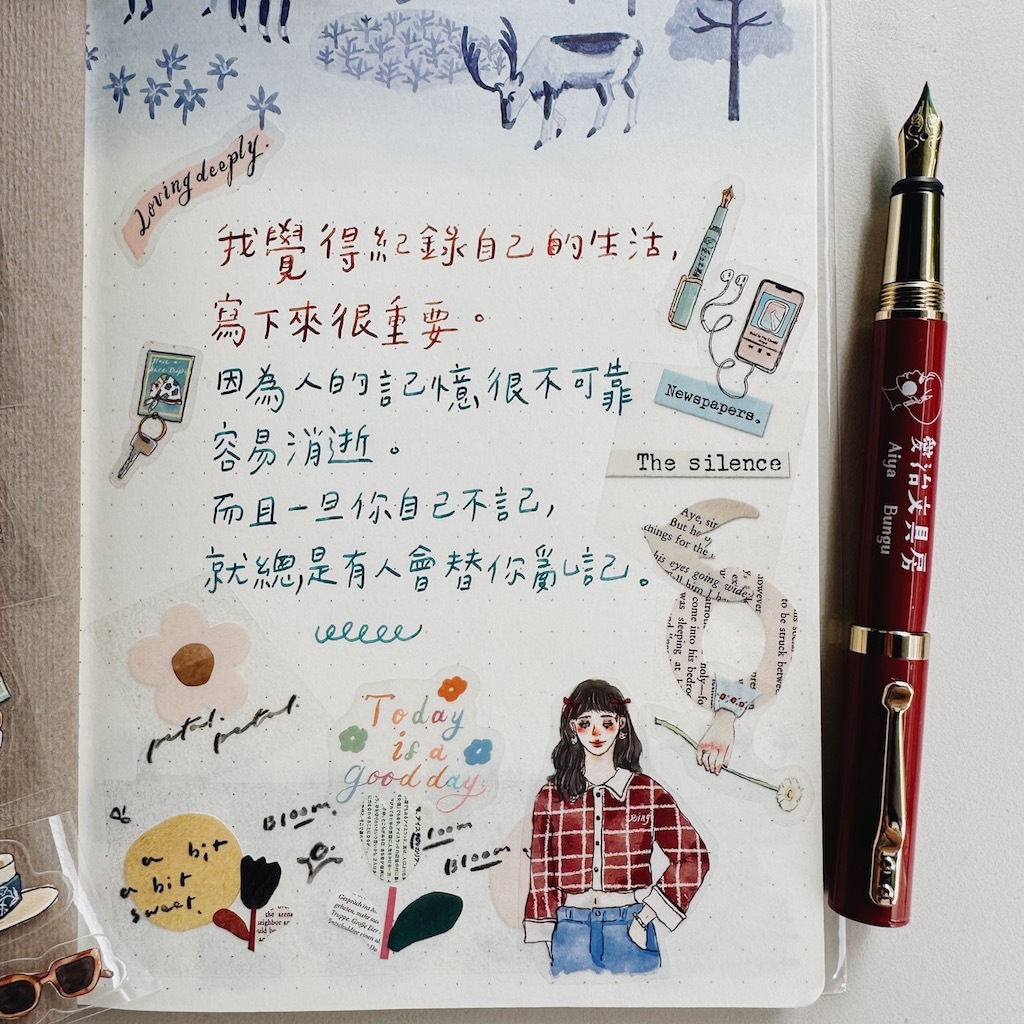 Loving deeply.
我覺得紀錄自己的生活,
寫下來很重要。
因為人的記憶很不可靠
容易消逝。
而且一旦你自己不記,
就總是有人會替你亂記。
Newspapers.
The silence
Aye, sir
But he
things for the
his eyes going wide
come into his bedro
was sleeping at
however
to be struck betwee
petal. petal.
Today
is a
good day
&
a bit
a bit
sweet.
Bloom.
Bloom
Bloom.
the scene
neighbor
Gespräch ist
gehoben, mehr
Truppe. Große Eier
愛治文具房
Aiya Bungu